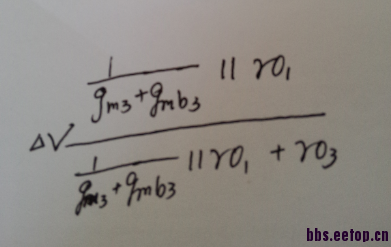 1
gm3 + gmb3 || ro1
ΔV
1
gm3 + gmb3 || ro1 + ro3
bbs.eetop.cn